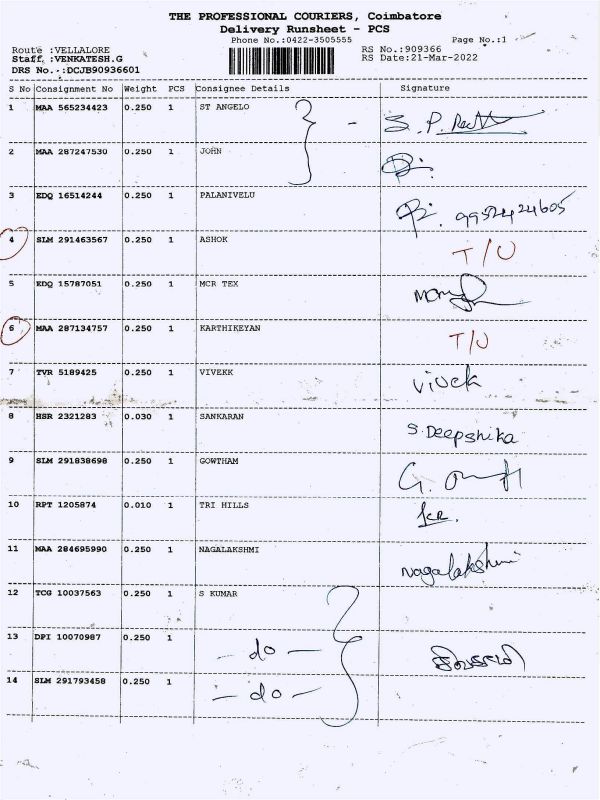 THE PROFESSIONAL COURIERS, Coimbatore
Delivery Runsheet - PCS
Phone No.:0422-3505555 Page No.:1
Route :VELLALORE RS No.:909366
Staff. :VENKATESH.G RS Date:21-Mar-2022
DRS No..:DCJB90936601
S No Consignment No Weight PCS Consignee Details Signature
1 MAA 565234423 0.250 1 ST ANGELO
2 MAA 287247530 0.250 1 JOHN
3 EDQ 16514244 0.250 1 PALANIVELU 9952424605
4 SLM 291463567 0.250 1 ASHOK T/U
5 EDQ 15787051 0.250 1 MCR TEX
6 MAA 287134757 0.250 1 KARTHIKEYAN T/U
7 TVR 5189425 0.250 1 VIVEKK Vivek
8 HSR 2321283 0.030 1 SANKARAN S. Deepshika
9 SLM 291838698 0.250 1 GOWTHAM
10 RPT 1205874 0.010 1 TRI HILLS
11 MAA 284695990 0.250 1 NAGALAKSHMI Nagalakshmi
12 TCG 10037563 0.250 1 S KUMAR
13 DPI 10070987 0.250 1 - do -
14 SLM 291793458 0.250 1 - do -